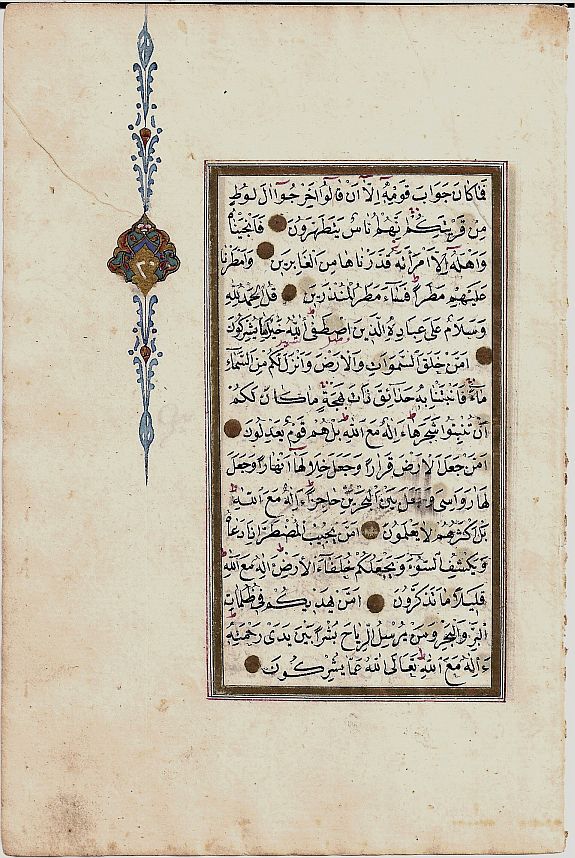 فَمَا كَانَ جَوَابَ قَوْمِهِ إِلَّا أَنْ قَالُوا أَخْرِجُوا آلَ لُوطٍ
مِنْ قَرْيَتِكُمْ إِنَّهُمْ أُنَاسٌ يَتَطَهَّرُونَ فَأَنْجَيْنَاهُ
وَأَهْلَهُ إِلَّا امْرَأَتَهُ قَدَّرْنَاهَا مِنَ الْغَابِرِينَ وَأَمْطَرْنَا
عَلَيْهِمْ مَطَرًا فَسَاءَ مَطَرُ الْمُنْذَرِينَ قُلِ الْحَمْدُ لِلَّهِ
وَسَلَامٌ عَلَى عِبَادِهِ الَّذِينَ اصْطَفَى آللَّهُ خَيْرٌ أَمَّا يُشْرِكُونَ
أَمَّنْ خَلَقَ السَّمَوَاتِ وَالْأَرْضَ وَأَنْزَلَ لَكُمْ مِنَ السَّمَاءِ
مَاءً فَأَنْبَتْنَا بِهِ حَدَائِقَ ذَاتَ بَهْجَةٍ مَا كَانَ لَكُمْ
أَنْ تُنْبِتُوا شَجَرَهَا ءَإِلَهٌ مَعَ اللَّهِ بَلْ هُمْ قَوْمٌ يَعْدِلُونَ
أَمَّنْ جَعَلَ الْأَرْضَ قَرَارًا وَجَعَلَ خِلَالَهَا أَنْهَارًا وَجَعَلَ
لَهَا رَوَاسِيَ وَجَعَلَ بَيْنَ الْبَحْرَيْنِ حَاجِزًا ءَإِلَهٌ مَعَ اللَّهِ
بَلْ أَكْثَرُهُمْ لَا يَعْلَمُونَ أَمَّنْ يُجِيبُ الْمُضْطَرَّ إِذَا دَعَاهُ
وَيَكْشِفُ السُّوءَ وَيَجْعَلُكُمْ خُلَفَاءَ الْأَرْضِ ءَإِلَهٌ مَعَ اللَّهِ
قَلِيلًا مَا تَذَكَّرُونَ أَمَّنْ يَهْدِيكُمْ فِي ظُلُمَاتِ
الْبَرِّ وَالْبَحْرِ وَمَنْ يُرْسِلُ الرِّيَاحَ بُشْرًا بَيْنَ يَدَيْ رَحْمَتِهِ
ءَإِلَهٌ مَعَ اللَّهِ تَعَالَى اللَّهُ عَمَّا يُشْرِكُونَ